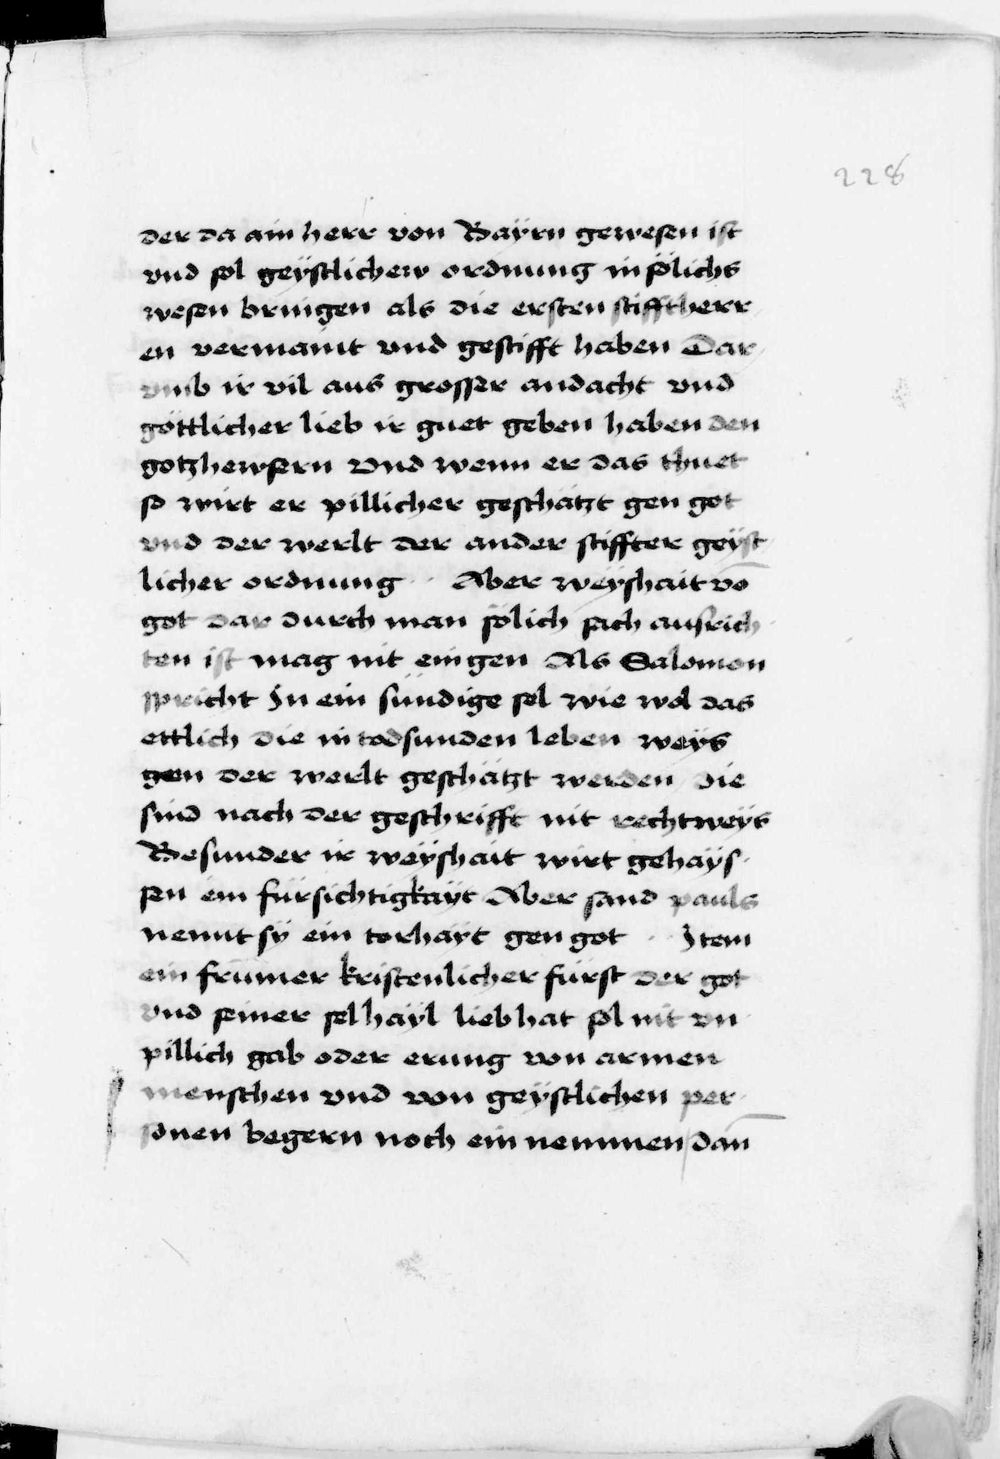 228
der da ain herr von Bayrn gewesen ist
vnd sol geÿstlichew ordnung in sölichs
wesen bringen als die ersten stifftherr
en vermaint vnd gestifft haben Dar
vmb ir vil aus grosser andacht vnd
göttlicher lieb ir guet geben haben den
gotzhewsern vnd wenn er das thuet
so wirt er pillicher geschätzt gen got
vnd der werlt der ander stiffter geÿst
licher ordnung Aber weÿshait vō
got dar durch man sölich sach ausrich
ten ist mag nit eingen Als Salomon
spricht In ein sündige sel wie wol das
ettlich die in todsunden leben weÿs
gen der werlt geschätzt werden die
sind nach der geschrifft nit rechtweÿs
Besunder ir weÿshait wirt gehaÿs
sen ein fürsichtigkaÿt Aber sand pauls
nennt sÿ ein torhayt gen got Item
ein frumer kristenlicher fürst der got
vnd seiner sel haÿl lieb hat sol nit vn
pillich gab oder erung von armen
menschen vnd von geÿstlichen per
sonen begern noch ein nemmen dañ